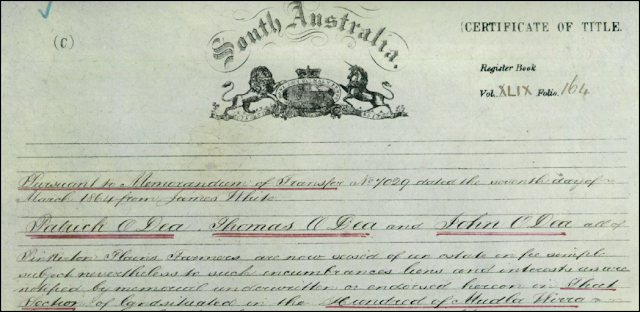 (C)
South Australia.
CERTIFICATE OF TITLE.
Register Book
Vol. XLIX Folio. 164
Pursuant to Memorandum of Transfer No 7029 dated the seventh day of
March 1864 from James White
Patrick O Dea, Thomas O Dea and John O Dea all of
Pinkerton Plains Farmers are now seised of an estate in fee simple
subject nevertheless to such incumbrances liens and interests as are
notified by memorial underwritten or endorsed hereon in That
Section of land situated in the Hundred of Mudla Wirra